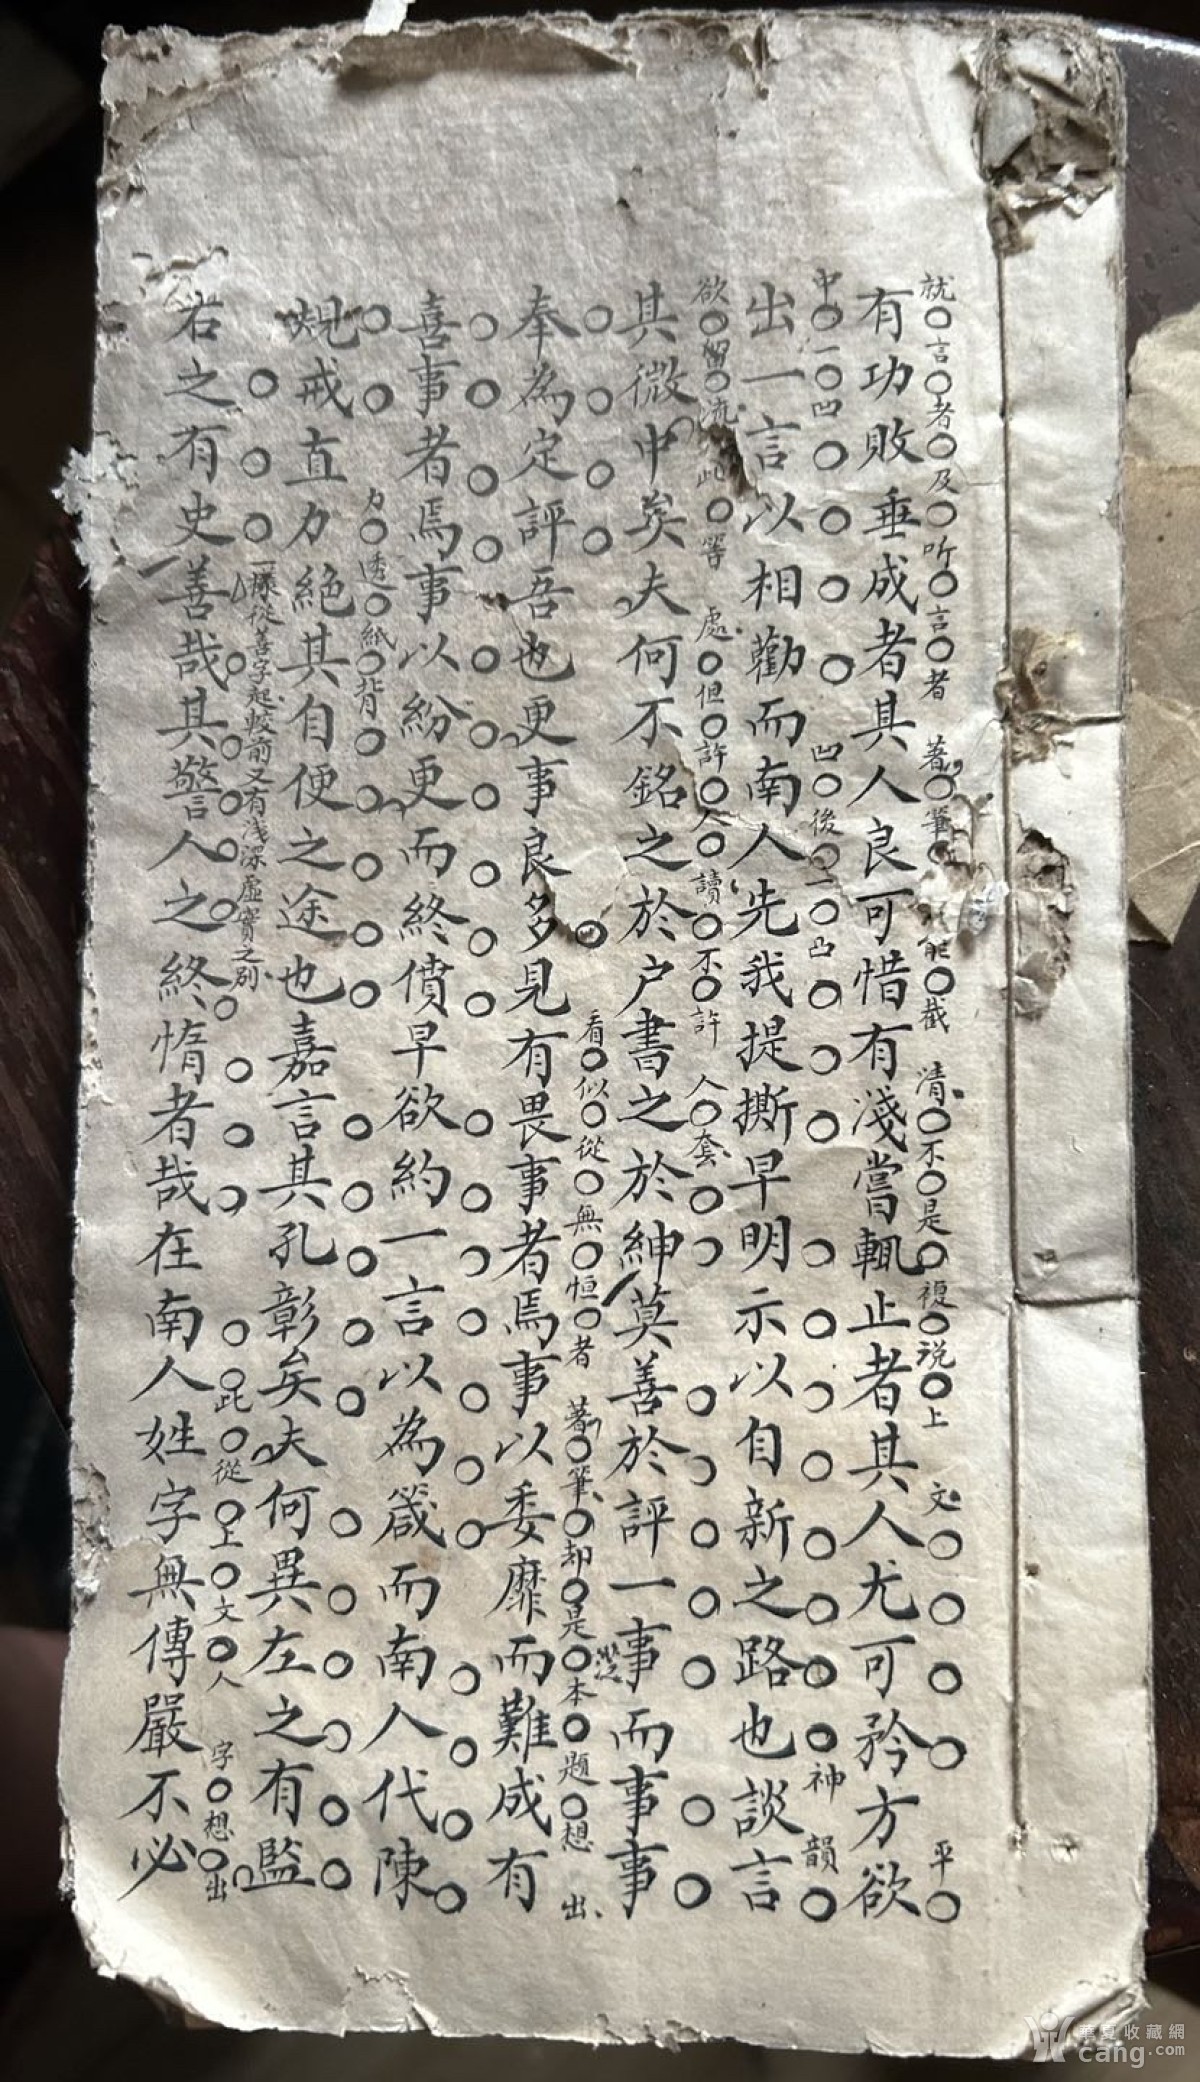 就言者及听言者 著筆 能截清不是複说上文 平
有功敗垂成者其人良可惜有淺嘗輒止者其人尤可矜方欲
中一凹 凹後一凸 神韻
出一言以相勸而南人先我提撕早明示以自新之路也談言
欲留流此等處但許人讀不許人套
其微中矣夫何不銘之於户書之於紳莫善於評一事而事事
看似從無恒者著筆却是從本題想出
奉為定評吾也更事良多見有畏事者焉事以委靡而難成有
喜事者焉事以紛更而終僨早欲約一言以為箴而南人代陳
力透紙背
規戒直力絕其自便之途也嘉言其孔彰矣夫何異左之有監
一層從善字起較前又有淺深虛實之别 此從上文人字想出
右之有史善哉其警人之終惰者哉在南人姓字無傳嚴不必
華夏收藏網
cang.com